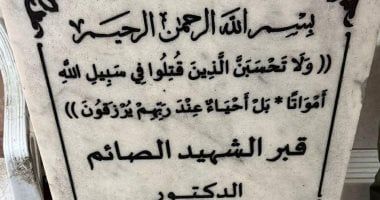 بسم الله الرحمن الرحيم
(( وَلَا تَحْسَبَنَّ الَّذِينَ قُتِلُوا فِي سَبِيلِ اللَّهِ
أَمْوَاتًا * بَلْ أَحْيَاءٌ عِنْدَ رَبِّهِمْ يُرْزَقُونَ ))
قبر الشهيد الصائم
الدكتور